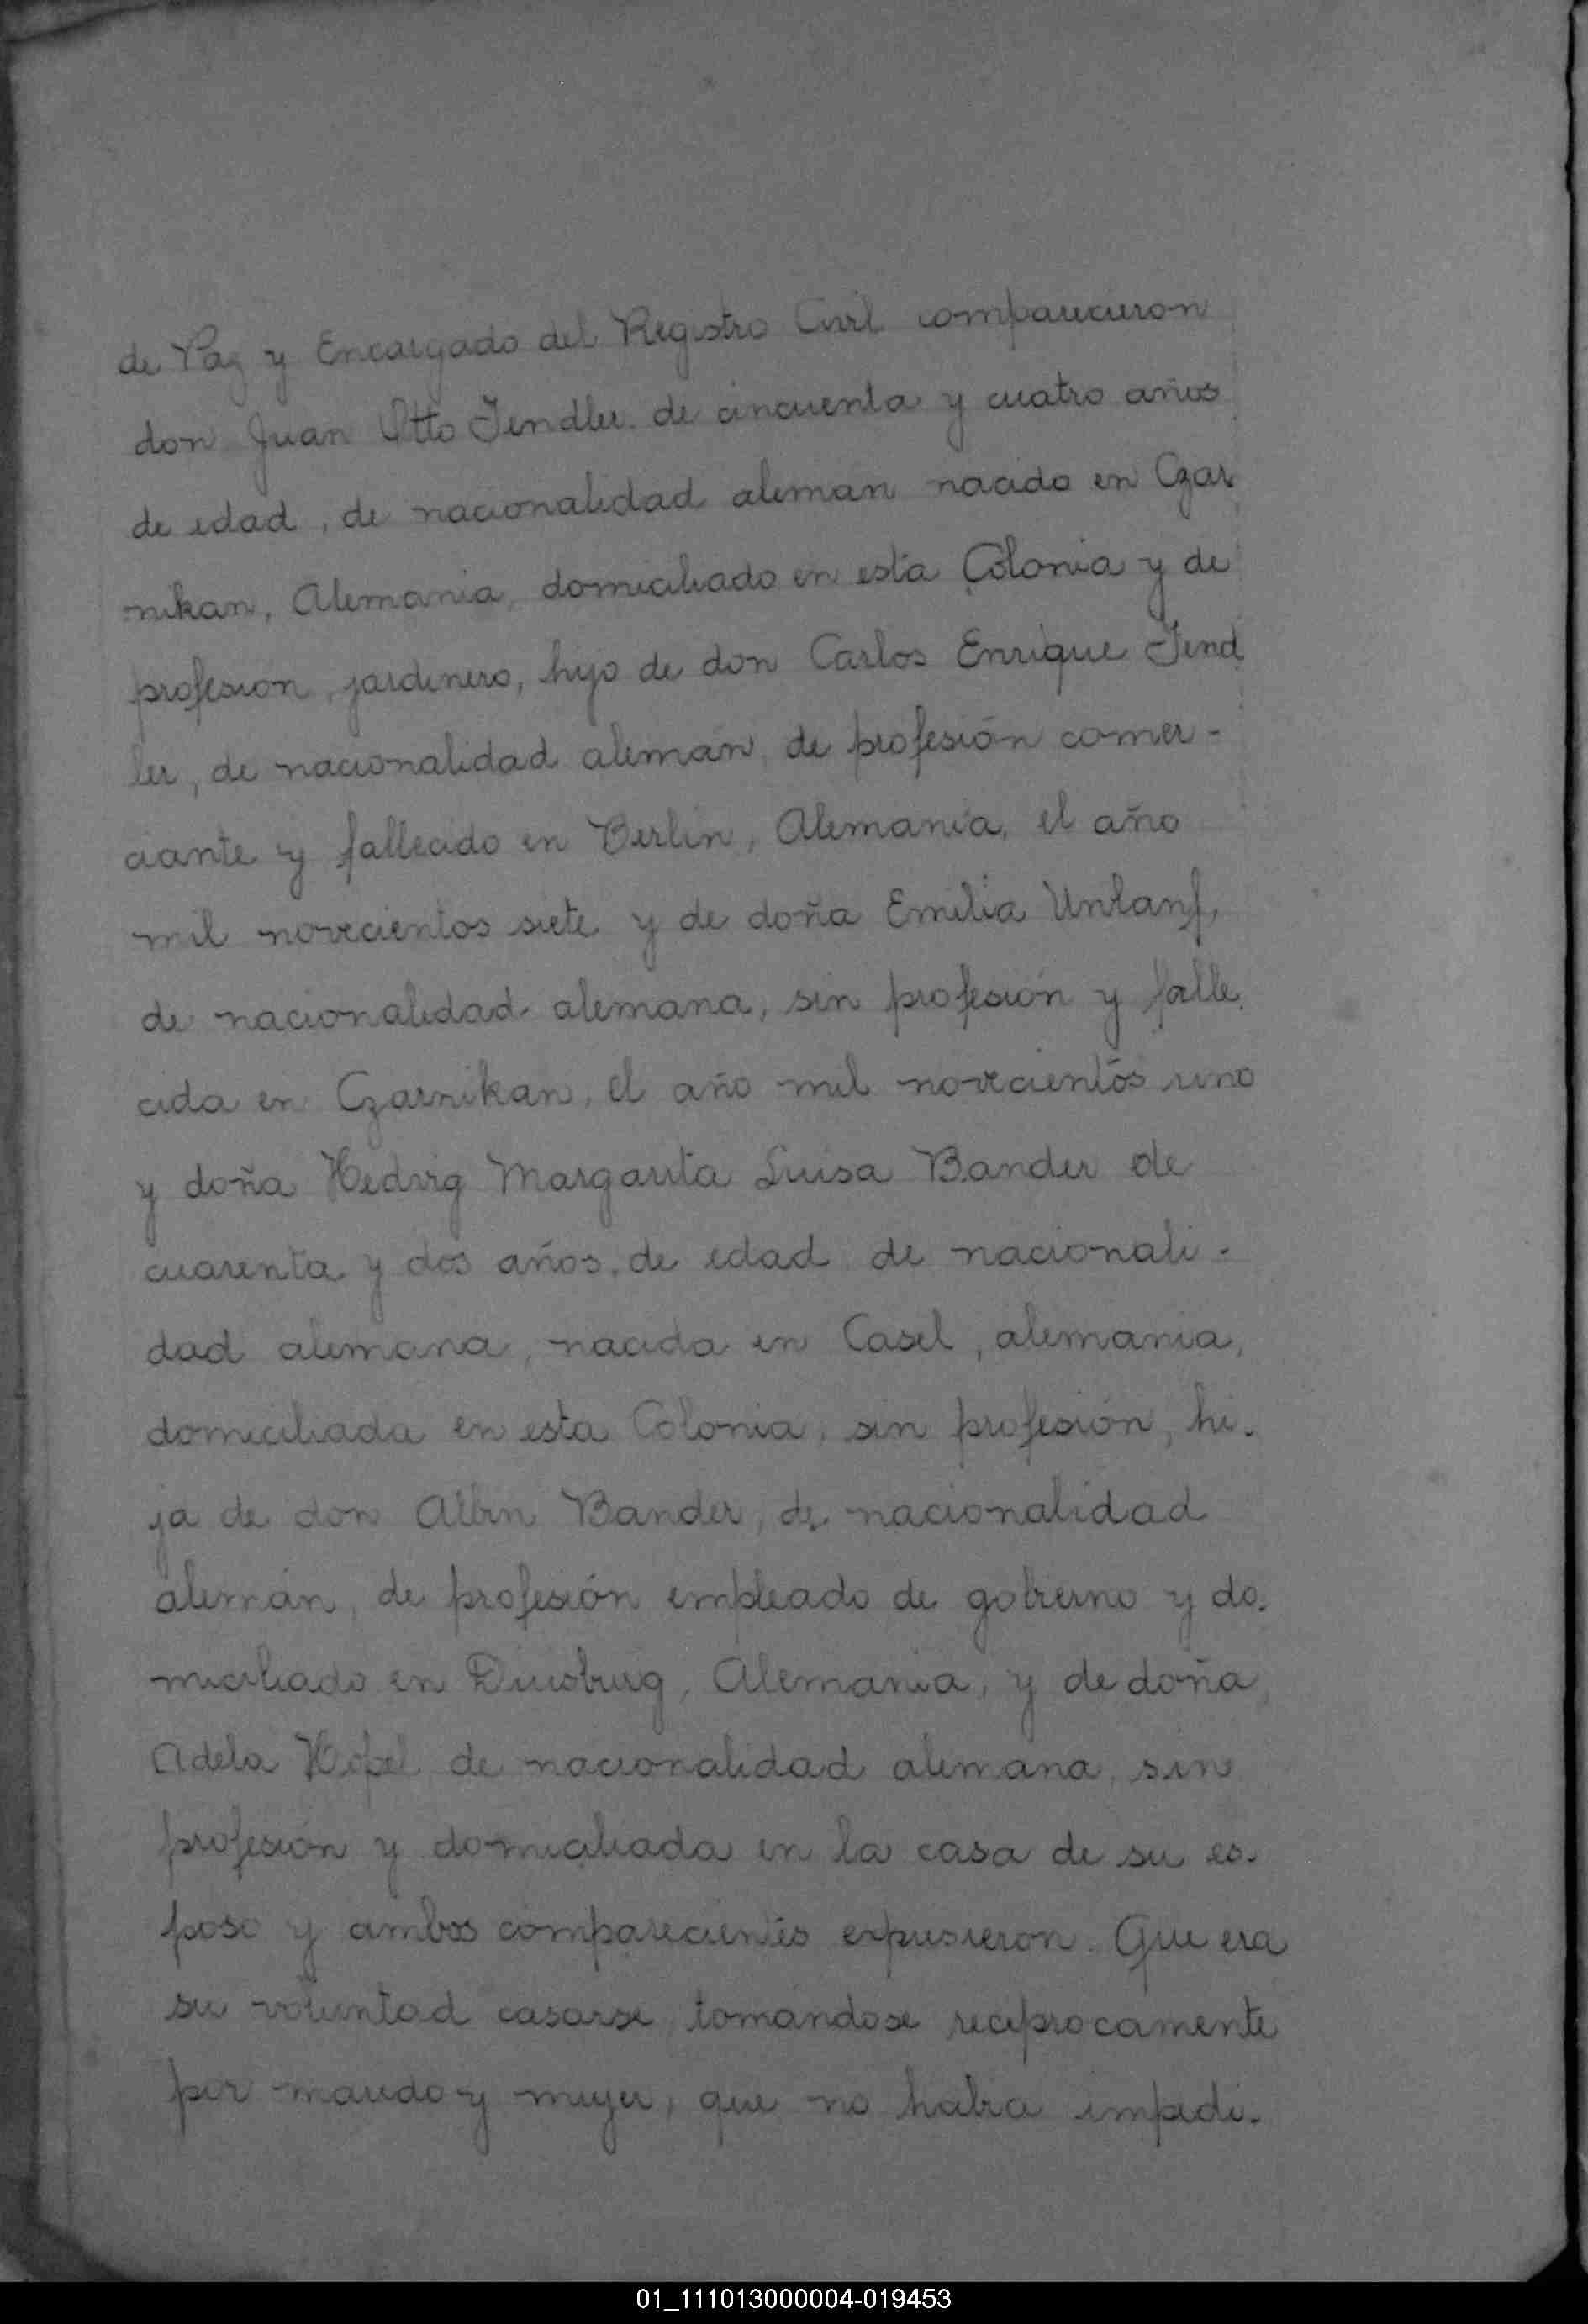 de Paz y Encargado del Registro Civil comparecieron
don Juan Otto Jendler de cincuenta y cuatro años
de edad, de nacionalidad aleman nacido en Czar
nikan, Alemania, domiciliado en esta Colonia y de
profesion, jardinero, hijo de don Carlos Enrique Jend
ler, de nacionalidad alemán, de profesión comer-
ciante y fallecido en Berlin, Alemania, el año
mil novecientos siete y de doña Emilia Unlanf,
de nacionalidad alemana, sin profesión y falle.
cida en Czarnikan, el año mil novecientos uno
y doña Hedvig Margarita Luisa Bander de
cuarenta y dos años, de edad de nacionali-
dad alemana, nacida en Casel, alemania,
domiciliada en esta Colonia, sin profesión, hi-
ja de don Albin Bander, de nacionalidad
alemán, de profesión empleado de gobierno y do.
miciliado en Alemania, y de doña
Adela de nacionalidad alemana, sin
profesión y domiciliada en la casa de su es-
poso y ambos comparecientes expusieron. Que era
su voluntad casarse, tomandose reciprocamente
por marido y mujer, que no habia impedi-
01_111013000004-019453